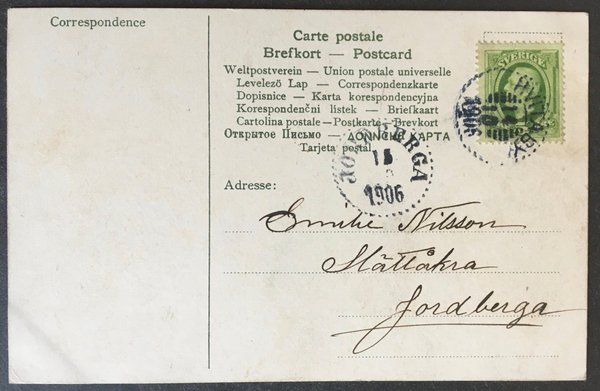 Correspondence
Carte postale
Brefkort — Postcard
Weltpostverein — Union postale universelle
Levelező Lap — Correspondenzkarte
Dopisnice — Karta korespondencyjna
Korespondenční listek — Briefkaart
Cartolina postale - Postkarte - Brevkort
Открытое Письмо — ΔΟΠΙCΗΑ ΚΑΡΤΑ
Tarjeta postal
SVERIGE
1906
JORDBERGA
15
1906
Adresse:
Emilie Nilsson
Slättåkra
Jordberga